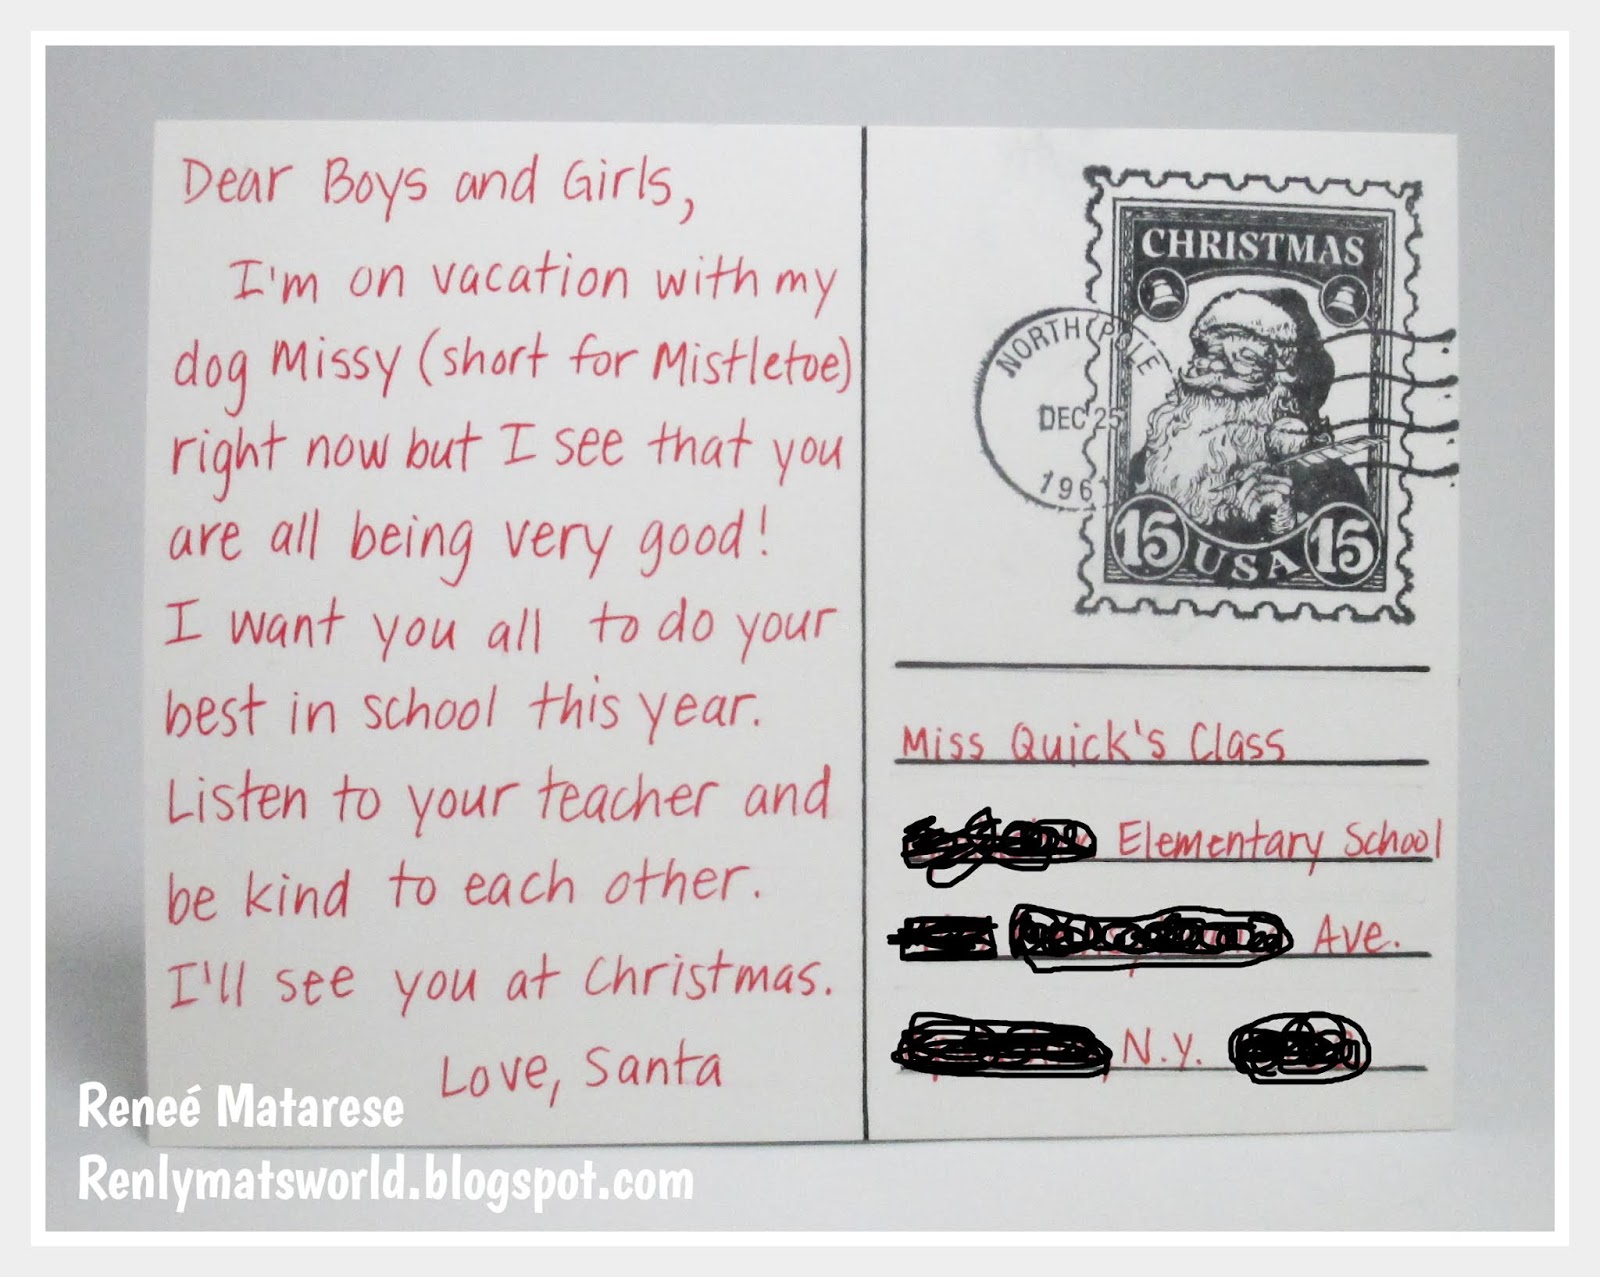 Dear Boys and Girls,
I'm on vacation with my
dog Missy (short for Mistletoe)
right now but I see that you
are all being very good!
I want you all to do your
best in school this year.
Listen to your teacher and
be kind to each other.
I'll see you at Christmas.
Love, Santa
CHRISTMAS
NORTH POLE
DEC 25
196
15 USA 15
Miss Quick's Class
Elementary School
Ave.
N.Y.
Reneé Matarese
Renlymatsworld.blogspot.com